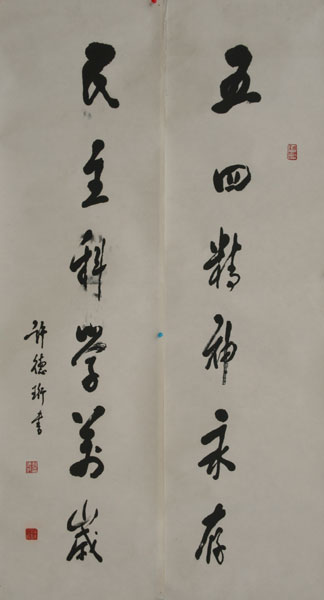 五四精神永存
民主科学万岁
許德珩書